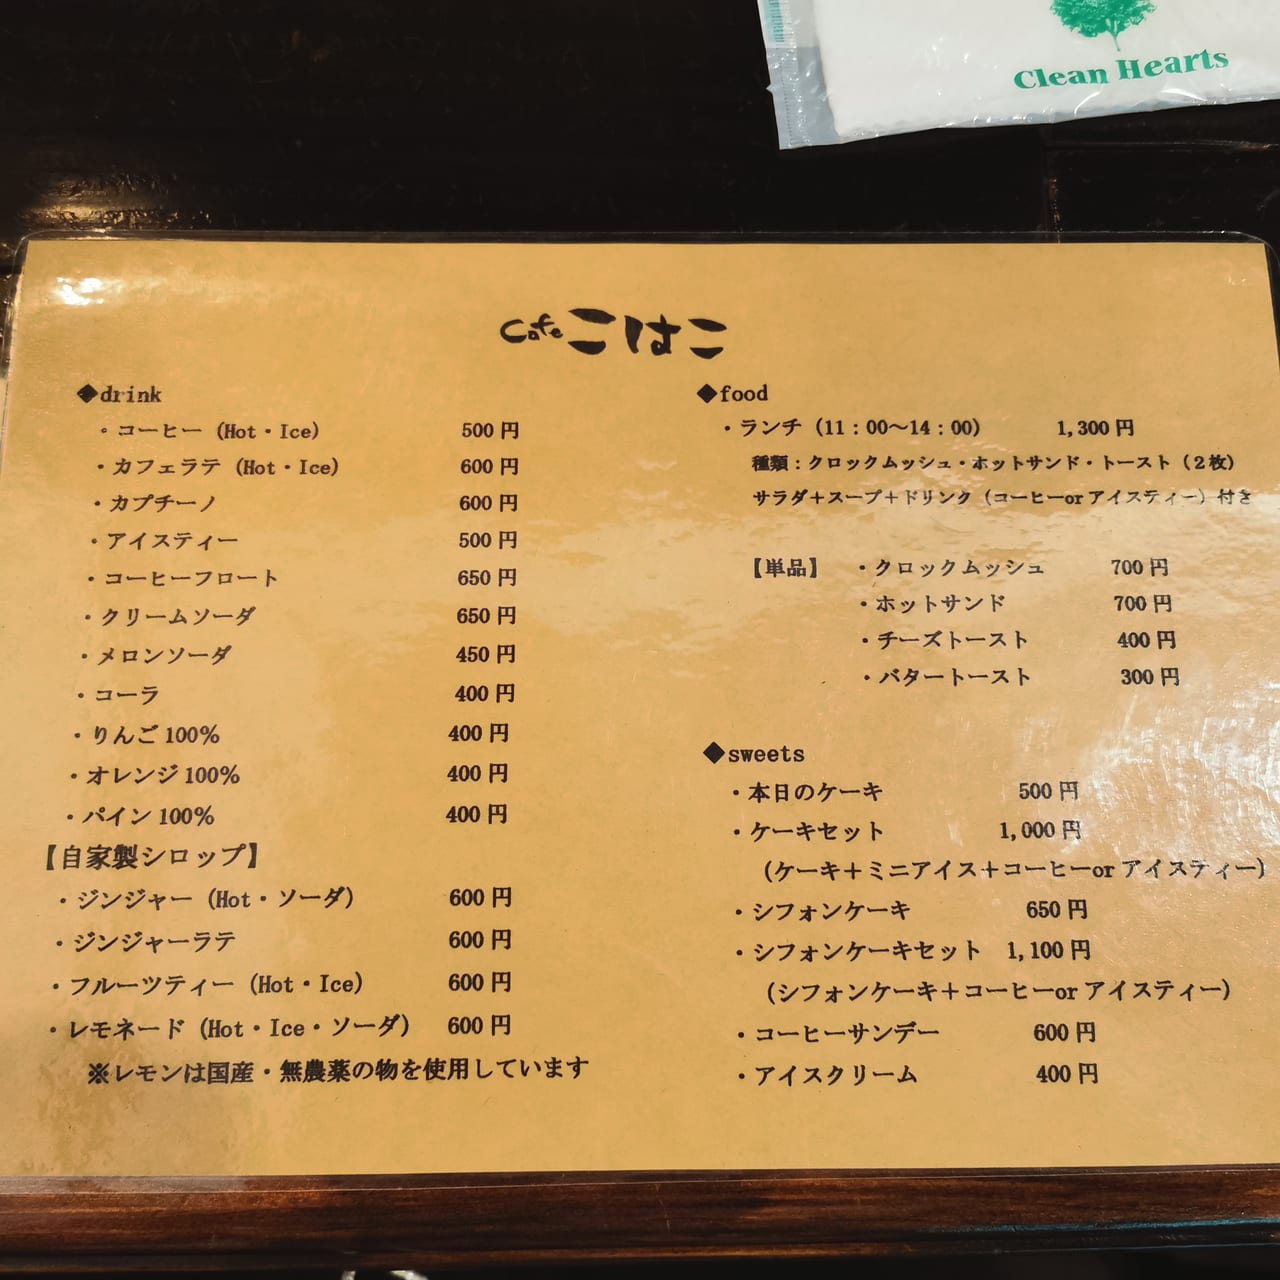 Clean Hearts
Cafe こはこ
◆drink
・コーヒー（Hot・Ice） 500円
・カフェラテ（Hot・Ice） 600円
・カプチーノ 600円
・アイスティー 500円
・コーヒーフロート 650円
・クリームソーダ 650円
・メロンソーダ 450円
・コーラ 400円
・りんご100% 400円
・オレンジ100% 400円
・パイン100% 400円
【自家製シロップ】
・ジンジャー（Hot・ソーダ） 600円
・ジンジャーラテ 600円
・フルーツティー（Hot・Ice） 600円
・レモネード（Hot・Ice・ソーダ） 600円
※レモンは国産・無農薬の物を使用しています
◆food
・ランチ（11：00～14：00） 1,300円
種類：クロックムッシュ・ホットサンド・トースト（２枚）
サラダ＋スープ＋ドリンク（コーヒーorアイスティー）付き
【単品】 ・クロックムッシュ 700円
・ホットサンド 700円
・チーズトースト 400円
・バタートースト 300円
◆sweets
・本日のケーキ 500円
・ケーキセット 1,000円
（ケーキ＋ミニアイス＋コーヒーorアイスティー）
・シフォンケーキ 650円
・シフォンケーキセット 1,100円
（シフォンケーキ＋コーヒーorアイスティー）
・コーヒーサンデー 600円
・アイスクリーム 400円